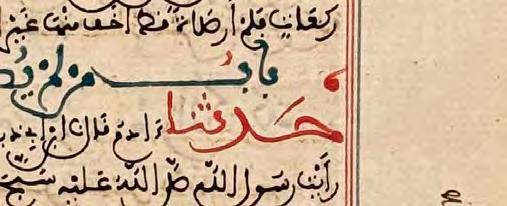 ركعات فلم أر صلاة قط أخف منها غير
بَابُ من لم
حَدثنا ادم قال ابن ابي
رأيت رسول الله صلى الله عليه سبح